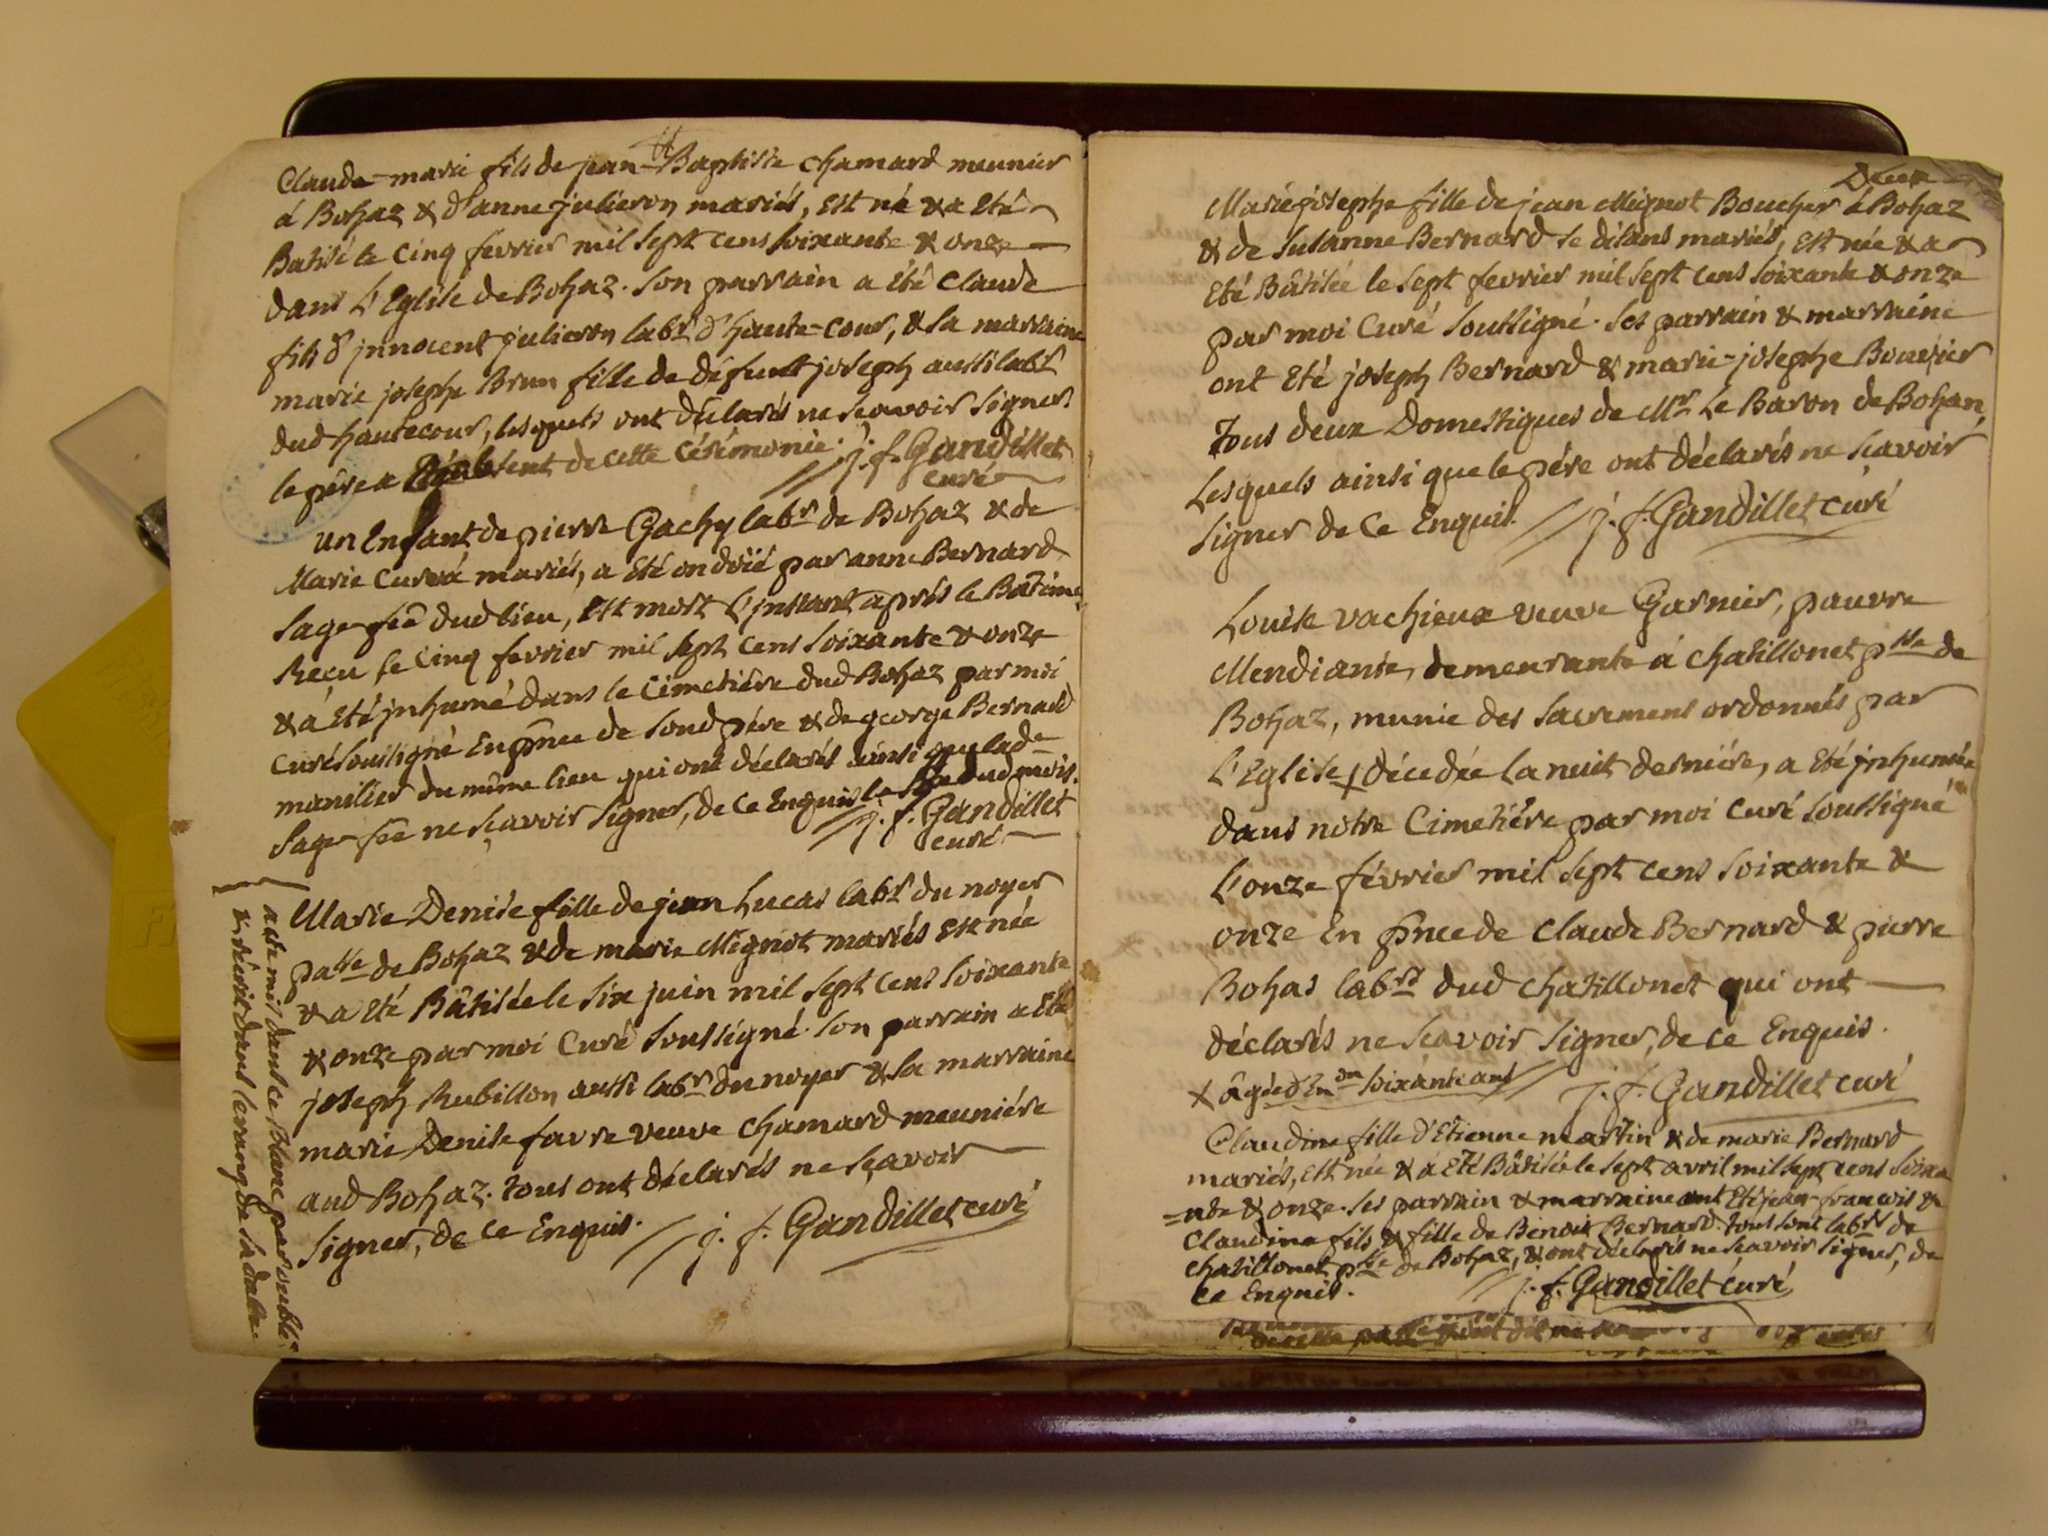 Claude-marie fils de jean-Baptiste chamard meunier
à Bohaz & d'anne julieron mariés, Est né & a Eté
Batisé le cinq fevrier mil sept cens soixante & onze
dans L'Eglise de Bohaz. Son parrain a été Claude
fils d'jnnocent julieron labr d'haute-cour, & sa marraine
marie josephe Brun fille de défunt joseph aussi labr
dud hautecour, lesquels ont déclarés ne sçavoir signer.
le père a absent de cette cérémonie. j. f. Gandillet
curé
un Enfant de pierre Gachy labr de Bohaz & de
Marie Curvá mariés, a Eté ondoïé par anne Bernard
sage feê dud lieu, Est mort L'jnstant après le Batême
Reçu le cinq fevrier mil sept cens soixante & onze
& a Eté jnhumé dans le cimetière dud Bohaz par moi
curé soussigné En pnce de soud pére & de george Bernard
manilier du même lieu qui ont déclarés ainsi que lade
sage feê ne sçavoir signer, de ce Enquis le dud mois.
j. f. Gandillet
curé
Marie Denise fille de jean Lucas labr du noyer
patte de Bohaz & de marie Mignot mariés Est née
& a Eté Bâtisée le six juin mil sept cens soixante
& onze par moi Curé soussigné. son parrain a Eté
joseph Rubillon aussi labr du noyer & sa marraine
marie Denise favre veuve Chamard meuniére
aud Bohaz. tous ont déclarés ne sçavoir
signer, de ce Enquis. j. f. Gandillet curé
acte mis dans ce blanc par oubli
& récrit dans le rang de sa datte.
Deux
Marie josephe fille de jean Mignot Boucher à Bohaz
& de Susanne Bernard se disans mariés, Est née & a
Eté Bâtisée le sept fevrier mil sept cens soixante & onze
par moi Curé soussigné. Ses parrain & marraine
ont Eté joseph Bernard & marie-josephe Bouvier
Tous deux Domestiques de Mr Le Baron de Bohan,
Lesquels ainsi que le pére ont déclarés ne sçavoir
signer de Ce Enquis. j. f. Gandillet curé
Louise vachieux veuve Garnier, pauvre
Mendiante, demeurante à chatillonet psse de
Bohaz, munie des sacremens ordonnés par
L'Eglise + décedée la nuit derniére, a Eté jnhumée
dans nôtre Cimetière par moi curé soussigné
L'onze février mil sept cens soixante &
onze En pnce de Claude Bernard & pierre
Bohas labrs dud chatillonet qui ont
déclarés ne sçavoir signer, de ce Enquis.
+ âgée d'Enon soixante ans j. f. Gandillet curé
Claudine fille d'Etienne martin & de marie Bernard
mariés, Est née & a Eté Bâtisée le sept avril mil sept cens soixa
=nte & onze. Ses parrain & marraine ont Eté jean-françois &
Claudine fils & fille de Benoit Bernard. tous sont labrs de
chatillonet psse de Bohaz, & ont déclarés ne sçavoir signer, de
ce Enquis. j. f. Gandillet curé